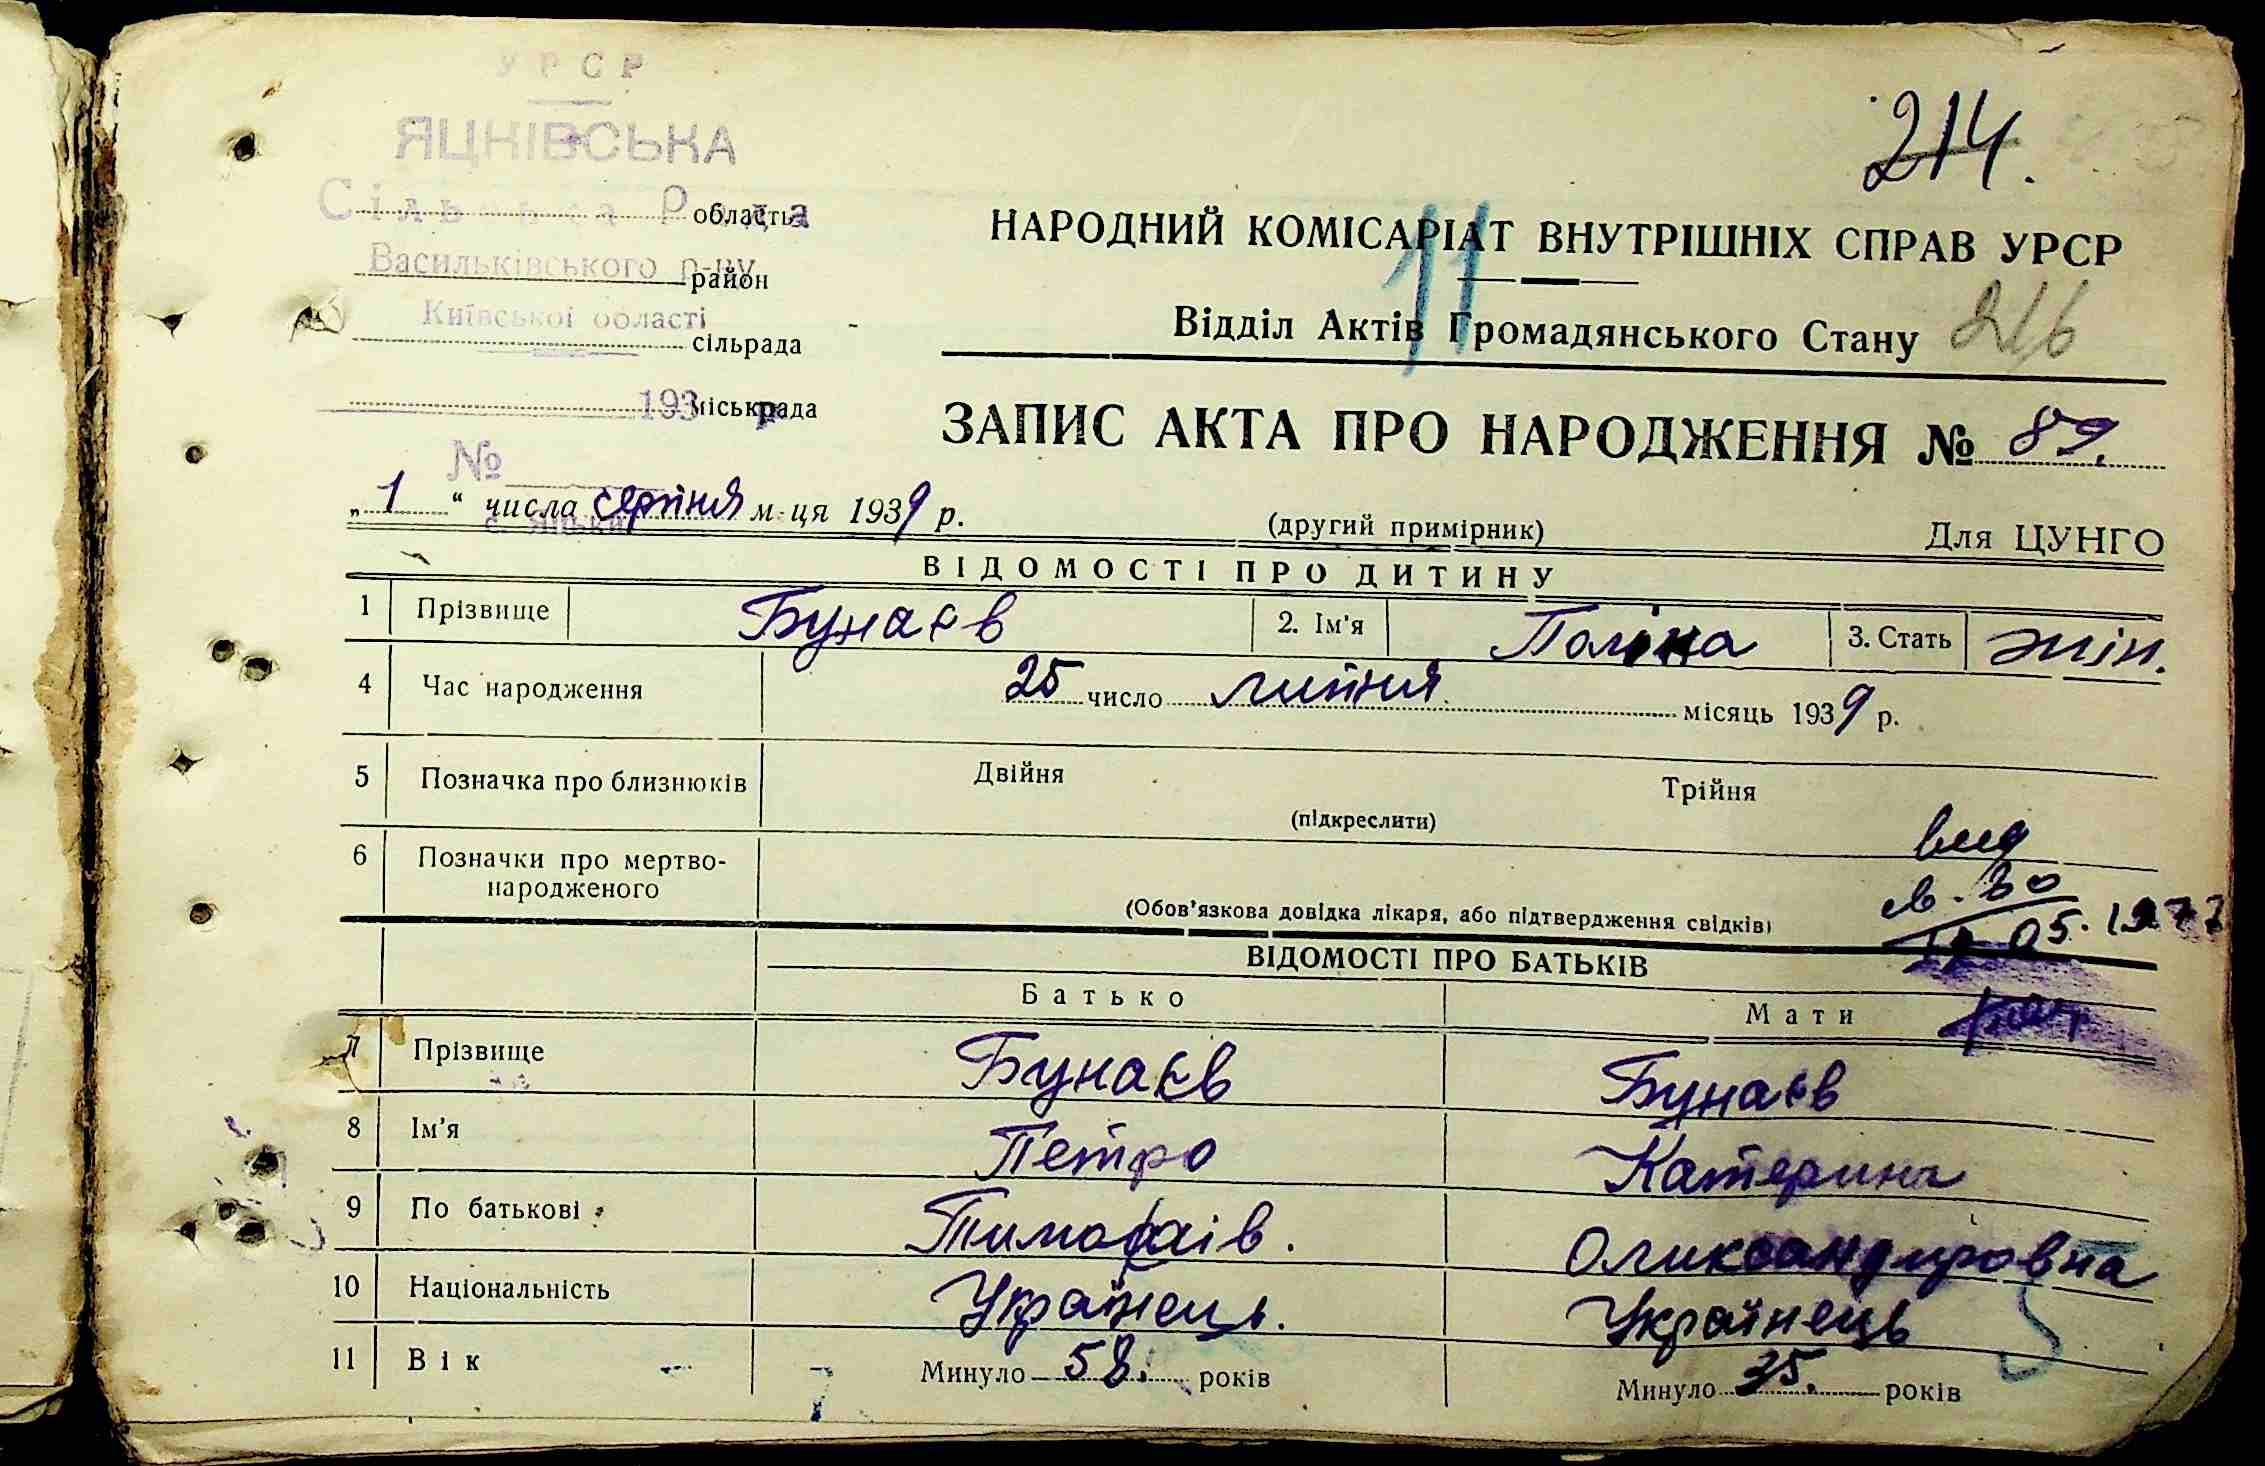 УРСР
ЯЦКІВСЬКА
Сільська Рада
область
Васильківського р-ну
район
Київської області
сільрада
193 р
міськрада
№
с. Яцьки
214.
НАРОДНИЙ КОМІСАРІАТ ВНУТРІШНІХ СПРАВ УРСР
11
Відділ Актів Громадянського Стану 216
ЗАПИС АКТА ПРО НАРОДЖЕННЯ № 89.
„1“ числа серпня м-ця 1939 р. (другий примірник) Для ЦУНГО
ВІДОМОСТІ ПРО ДИТИНУ
1 Прізвище Бунаєв 2. Ім'я Поліна 3. Стать жін.
4 Час народження 25 число липня місяць 1939 р.
5 Позначка про близнюків Двійня Трійня
(підкреслити)
6 Позначки про мертво-
народженого
(Обов'язкова довідка лікаря, або підтвердження свідків)
05.1977
ВІДОМОСТІ ПРО БАТЬКІВ
Батько Мати
7 Прізвище Бунаєв Бунаєв
8 Ім'я Петро Катерина
9 По батькові Тимофаів. Оликсандровна
10 Національність Українець. Українець
11 Вік Минуло 58. років Минуло 35. років